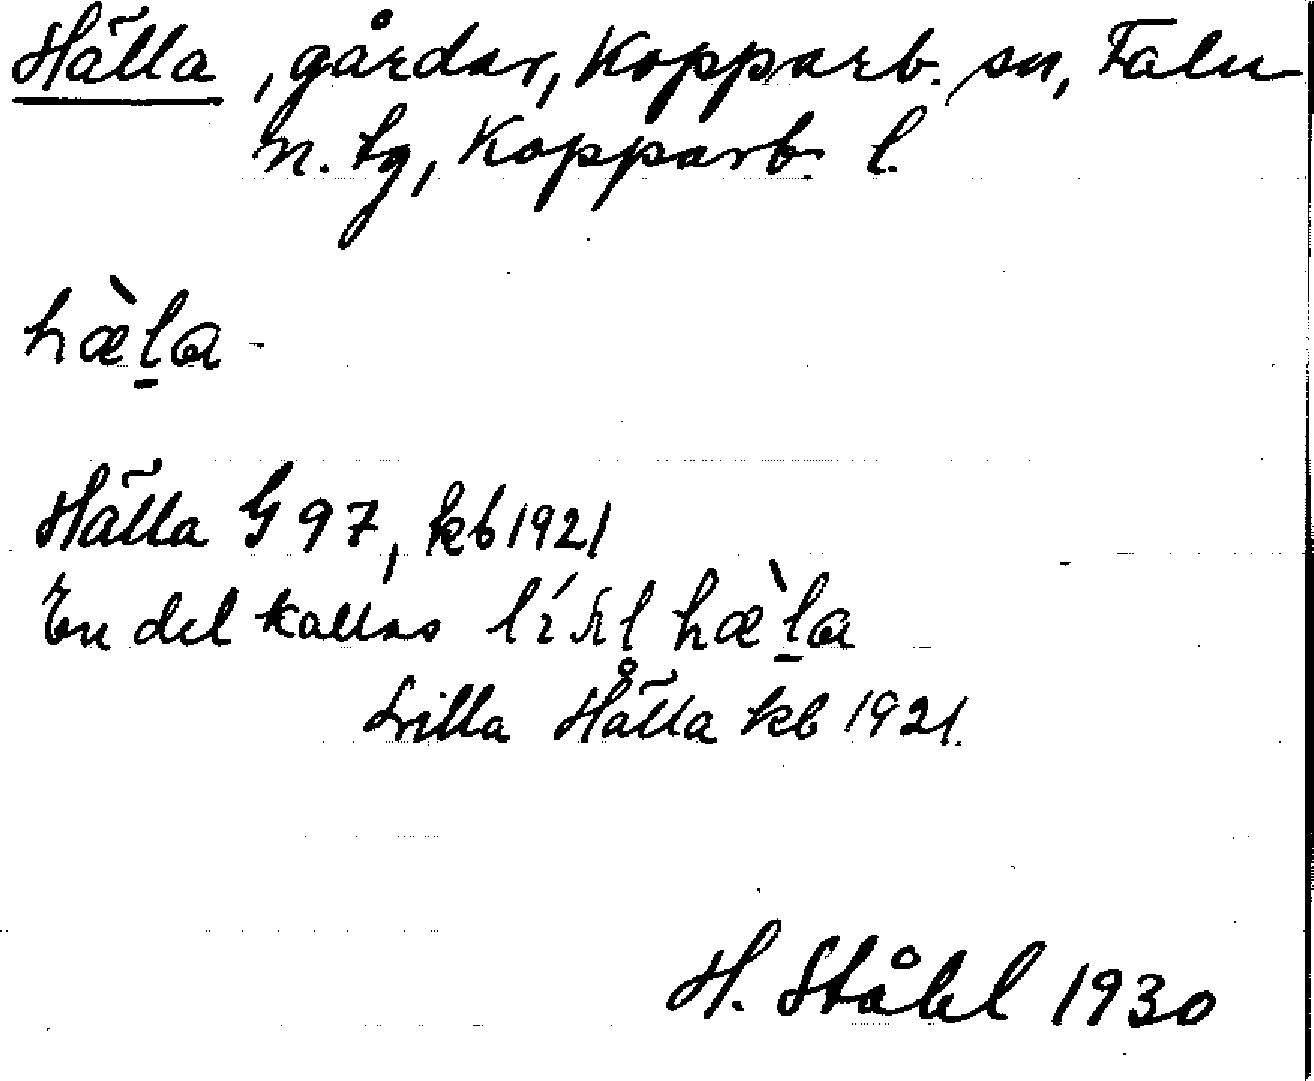 Hälla, gårdar, Kopparb. sn, Falu
n. tg, Kopparb. l.
hæ̀l̠a
Hälla G 97, kb 1921
En del kallas hæ̀l̠a
Lilla Hälla kb 1921.
H. Ståhl 1930